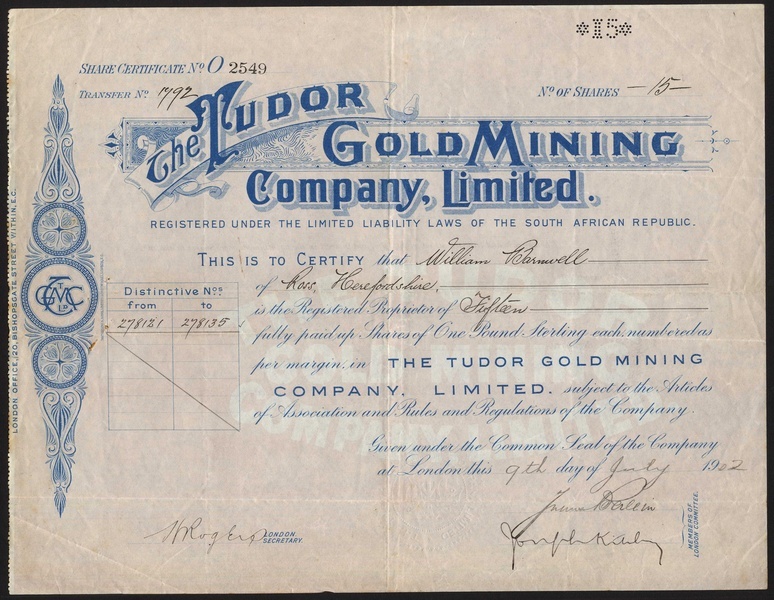 *15*
SHARE CERTIFICATE No O 2549
TRANSFER No 1792
No OF SHARES —15—
The TUDOR
GOLD MINING
Company, Limited.
REGISTERED UNDER THE LIMITED LIABILITY LAWS OF THE SOUTH AFRICAN REPUBLIC.
THIS IS TO CERTIFY that William Barnwell
of Ross, Herefordshire,
is the Registered Proprietor of Fifteen
fully paid up Shares of One Pound Sterling each, numbered as
per margin, in THE TUDOR GOLD MINING
COMPANY, LIMITED. subject to the Articles
of Association and Rules and Regulations of the Company.
Given under the Common Seal of the Company
at London this 9th day of July 1902
Distinctive Nos.
from to
278121 278135
LONDON OFFICE, 120, BISHOPSGATE STREET WITHIN, E.C.
T G M C LD
Rogers LONDON
SECRETARY.
Joseph
MEMBERS OF
LONDON COMMITTEE.